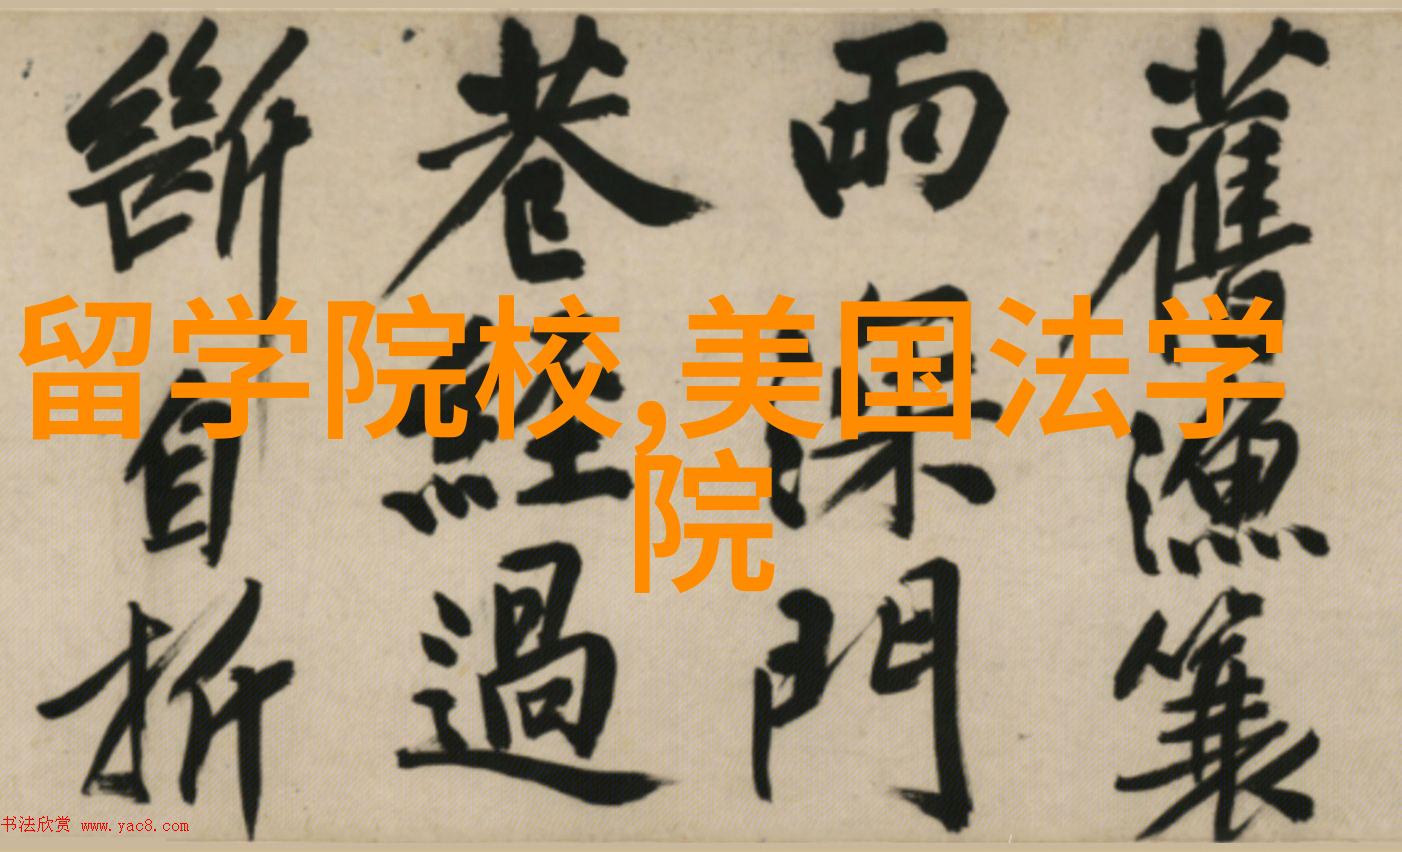 舊漁簑
雨深門
巷經過
斷自折
留学院校,美国法学
院
书法欣赏 www.yac8.com